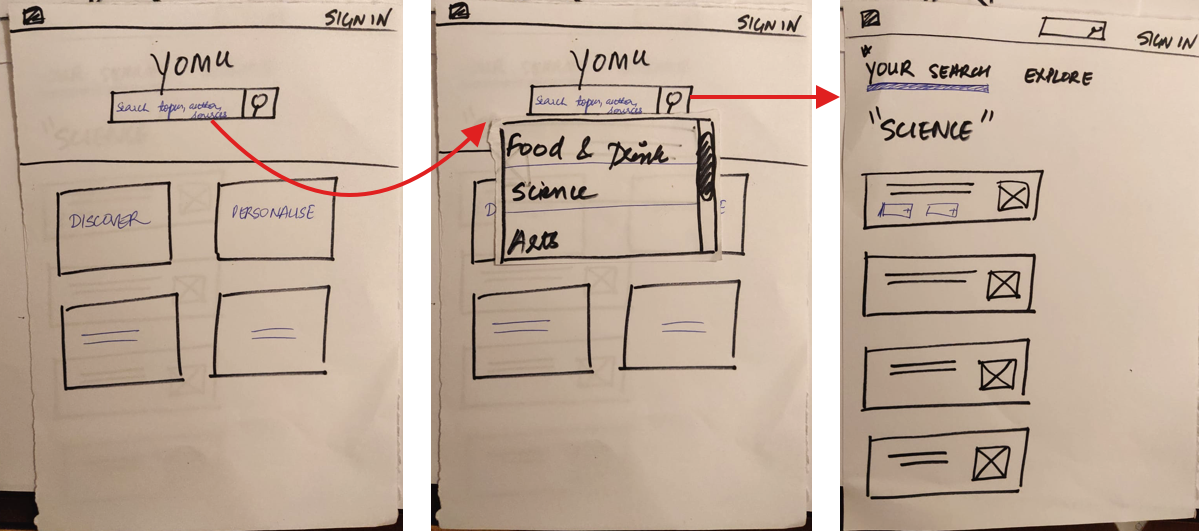 SIGN IN
YOMU
Search topics, author,
sources
DISCOVER
PERSONALISE
SIGN IN
YOMU
Search topics, author,
sources
Food & Drink
Science
Arts
D
E
SIGN IN
YOUR SEARCH
EXPLORE
"SCIENCE"